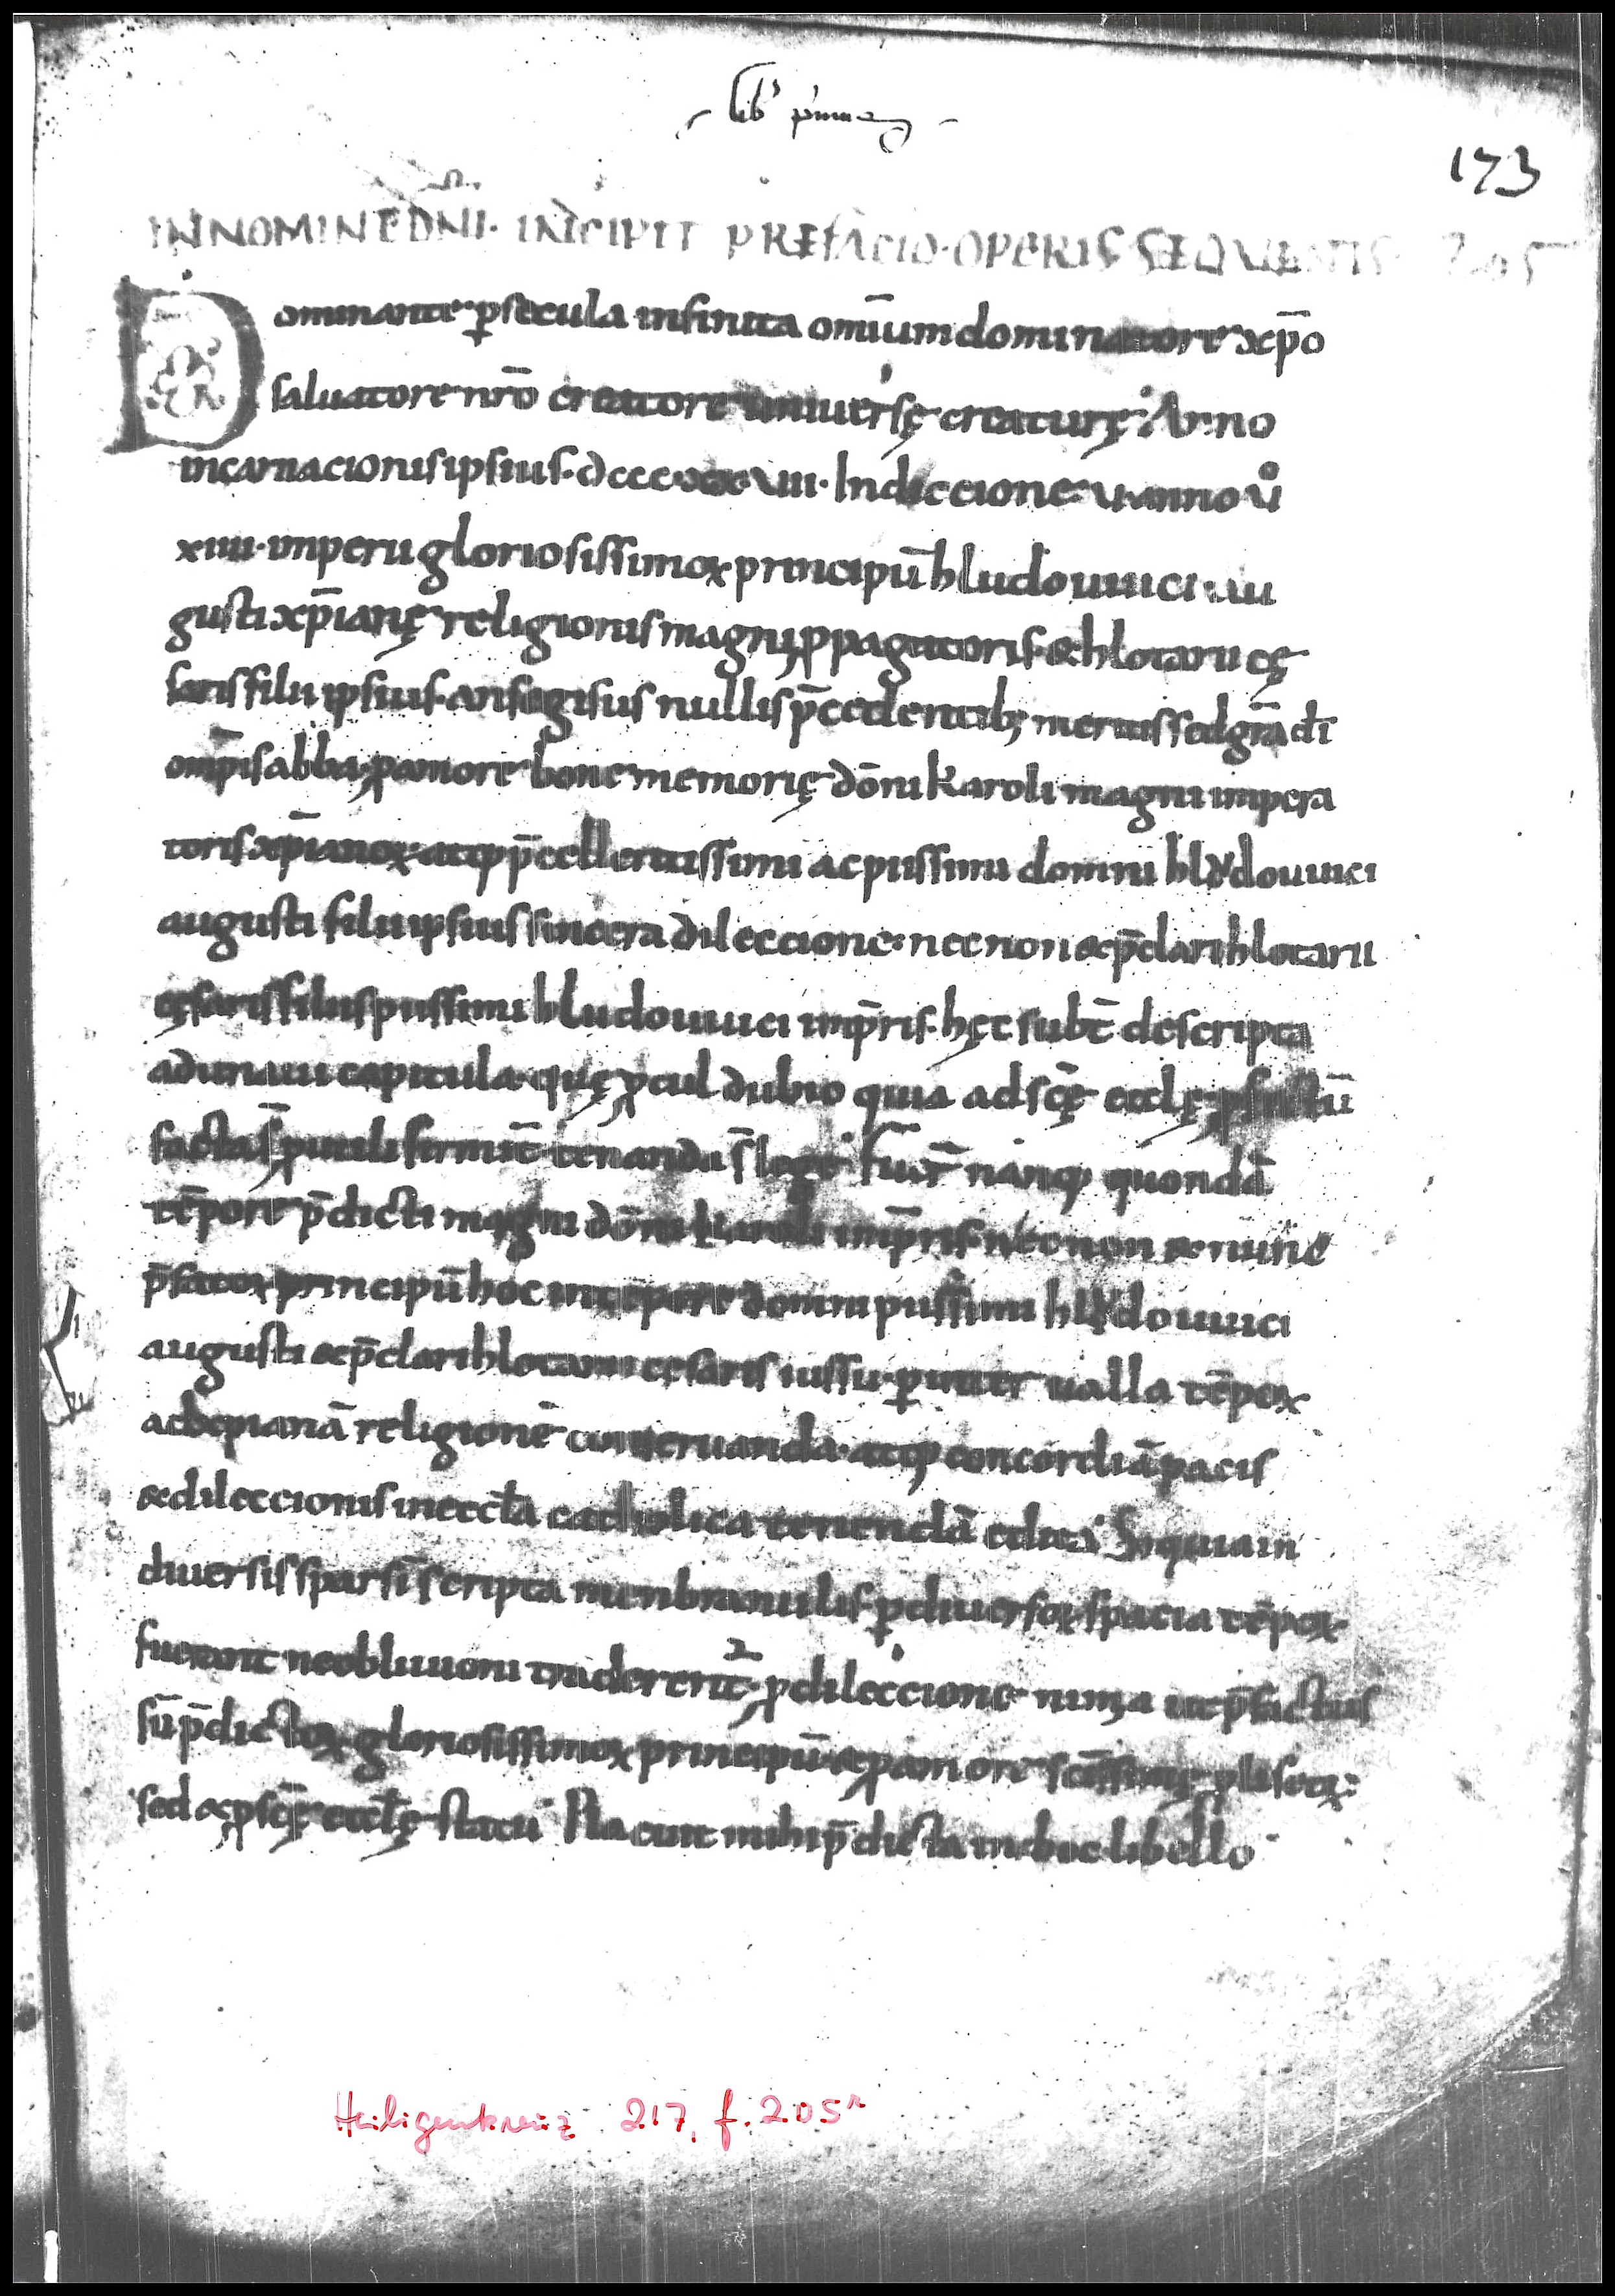 lib' prim⁹
173
IN NOMINE DN̄I· INCIPIT PREFACIO· OPERIS SEQUENTIS· 205
Dominante ꝑ secula infinita om̄ium dominatore xp̄o
saluatore nr̄o creatore uniuersę creaturę. Anno
incarnacionis ipsius· dccc·xx·viii· Indiccione· v· anno ů
xiiii· imperii gloriosissimoꝝ principū hludouuici au
gusti xp̄ianę religionis magni ꝓpagatoris· & hlotarii cę
saris filii ipsius· ansegisus nullis p̄cedentib; meritis sed grā dī
omp̄is abba· ꝓ amore bone memorię dōni karoli magni impera
toris xp̄ianoꝝ· atq; p̄cellentissimi ac piissimi domni hludouuici
augusti filii ipsius sincera dileccione: nec non & p̄clari hlotarii
cęsaris filius piissimi hludouuici imp̄ris· hęc subt̄ descripta
adunaui capitula· quę ꝓcul dubio quia ad sc̄ę eccl̄ę ꝓfectū
facta s̄ ꝓ utili firmit̄ tenenda s̄ lege. Fuer̄ nanq; quondā
tēpore p̄dicti magni dōni karoli imp̄ris· nec non & nunc
p̄fatoꝝ principū hoc in tēpore domni piissimi hludouuici
augusti & p̄clari hlotarii cęsaris iussu· ꝑ interualla tēpoꝝ
ad xp̄ianā religionē conseruanda· atq; concordiā pacis
& dileccionis in eccl̄a catholica tenendā edita. Sed quia in
diuersis sparsī scripta menbranulis· ꝑ diuersoꝝ spacia tēpoꝝ
fuerant ne obliuioni traderent̄· ꝓ dileccione nimia ut p̄fatus
sū p̄dictoꝝ gloriosissimoꝝ principū· & ꝓ amore sc̄issimę ꝓlis eoꝝ:
sed & ꝓ sc̄ę eccl̄ę statu. Placuit mihi p̄dicta in hoc libello
Heiligenkreuz 217, f. 205ʳ